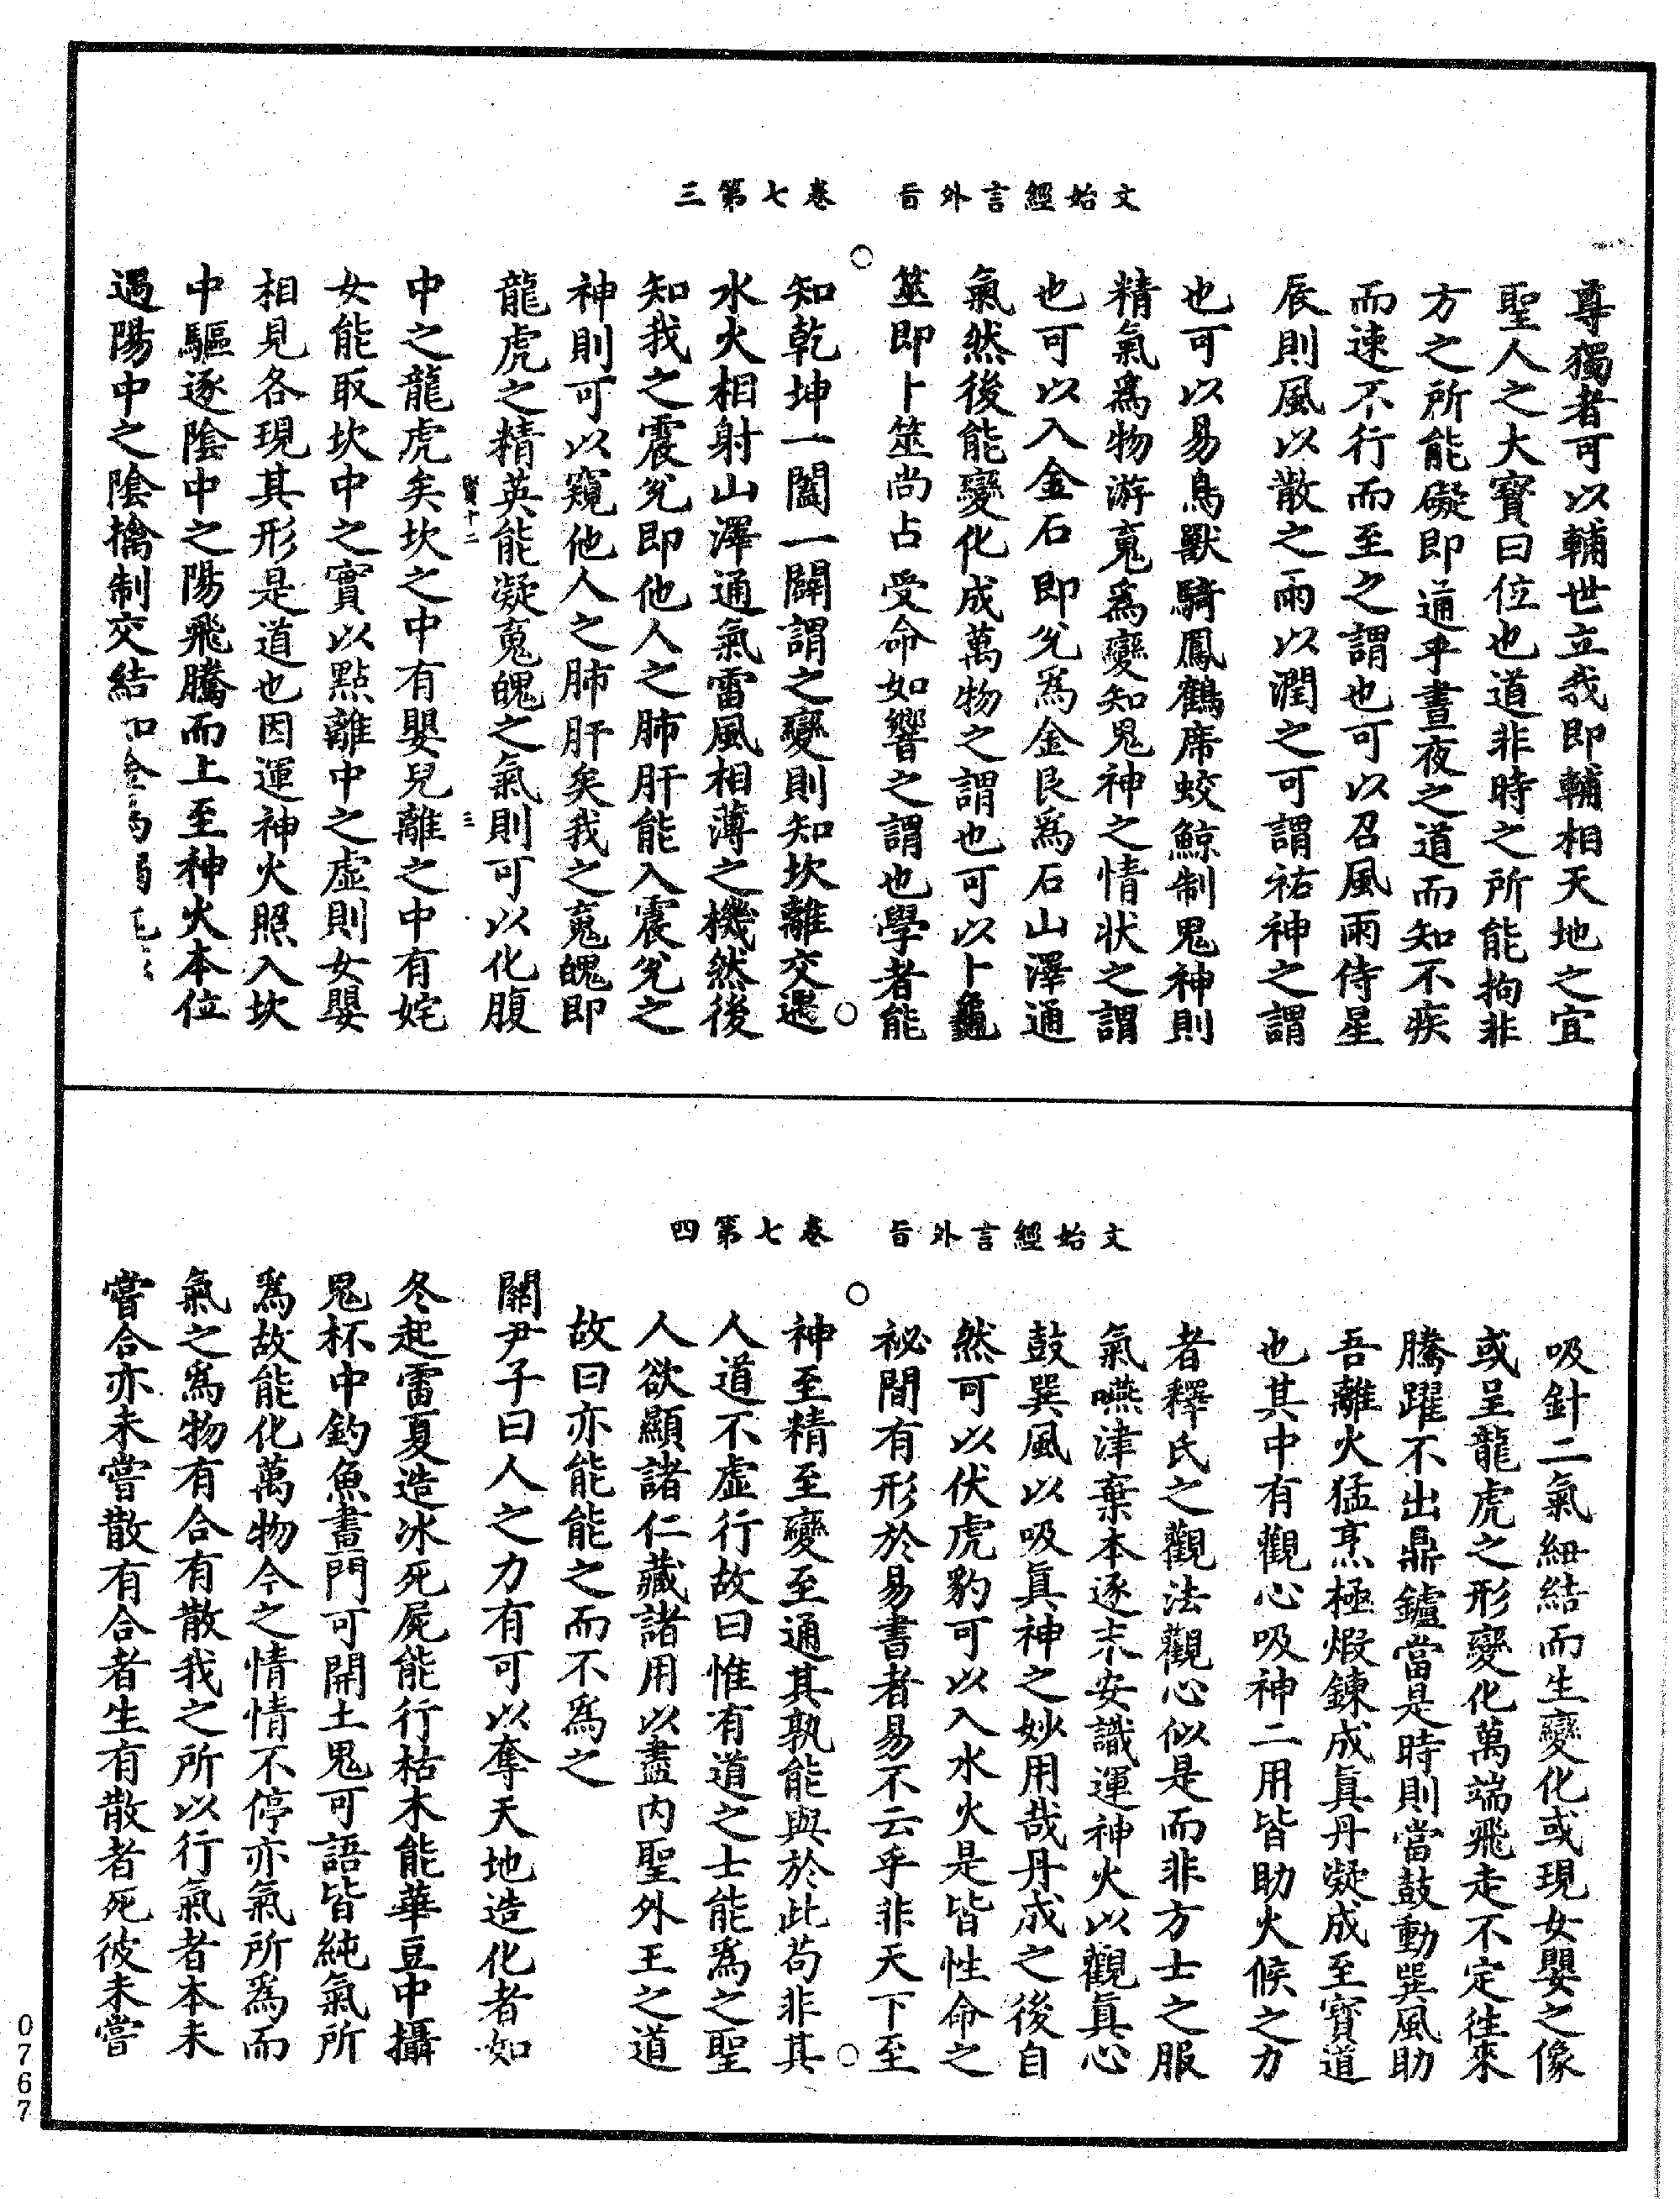 文始經言外旨　卷七第三
尊獨者可以輔世立我即輔相天地之宜
聖人之大寶曰位也道非時之所能拘非
方之所能礙即通乎晝夜之道而知不疾
而速不行而至之謂也可以召風雨侍星
辰則風以散之雨以潤之可謂祐神之謂
也可以易鳥獸騎鳳鶴席蛟鯨制鬼神則
精氣爲物游䰟爲變知鬼神之情状之謂
也可以入金石即兊爲金艮爲石山澤通
氣然後能變化成萬物之謂也可以卜龜
筮即卜筮尚占受命如響之謂也學者能
知乾坤一闔一闢謂之變則知坎離交遘
水火相射山澤通氣雷風相薄之機然後
知我之震兊即他人之肺肝能入震兊之
神則可以窺他人之肺肝矣我之䰟魄即
龍虎之精英能凝䰟魄之氣則可以化腹
中之龍虎矣坎之中有嬰兒離之中有姹
女能取坎中之實以點離中之虛則女嬰
相見各現其形是道也因運神火照入坎
中驅逐陰中之陽飛騰而上至神火本位
遇陽中之陰擒制交結
文始經言外旨　卷七第四
吸針二氣紐結而生變化或現女嬰之像
或呈龍虎之形變化萬端飛走不定往來
騰躍不出鼎鑪當是時則當鼓動巽風助
吾離火猛烹極煅鍊成眞丹凝成至寳道
也其中有觀心吸神二用皆助火候之力
者釋氏之觀法觀心似是而非方士之服
氣嚥津棄本逐末安識運神火以觀眞心
鼓巽風以吸眞神之妙用哉丹成之後自
然可以伏虎豹可以入水火是皆性命之
祕間有形於易書者易不云乎非天下至
神至精至變至通其孰能與於此苟非其
人道不虛行故曰惟有道之士能爲之聖
人欲顯諸仁藏諸用以盡内聖外王之道
故曰亦能能之而不爲之
關尹子曰人之力有可以奪天地造化者如
冬起雷夏造冰死屍能行枯木能華豆中攝
鬼杯中釣魚畫門可開土鬼可語皆純氣所
爲故能化萬物今之情情不停亦氣所爲而
氣之爲物有合有散我之所以行氣者本未
嘗合亦未嘗散有合者生有散者死彼未嘗
0767